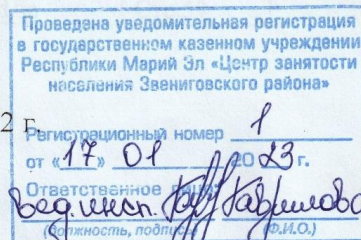 Проведена уведомительная регистрация
в государственном казенном учреждении
Республики Марий Эл «Центр занятости
населения Звениговского района»
2 г.
Регистрационный номер 1
от «17» 01 2023 г.
Ответственное лицо:
вед. инсп. Гаврилова
(должность, подпись) (Ф.И.О.)